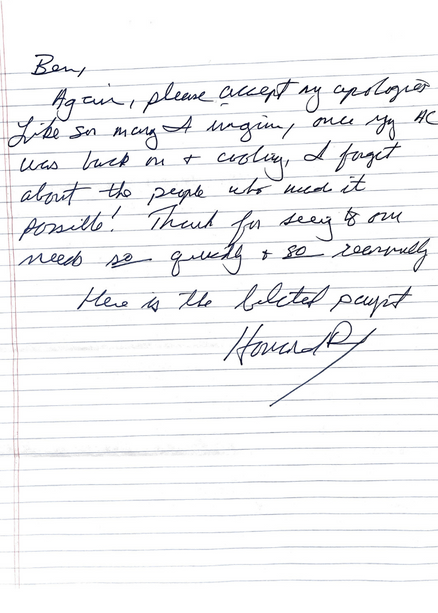 Ben,
Again, please accept my apologies
Like so many I imagine, once my AC
was back on + cooling, I forget
about the people who made it
possible! Thank for seeing to our
needs so quickly + so reasonably
Here is the belated payment
Howard